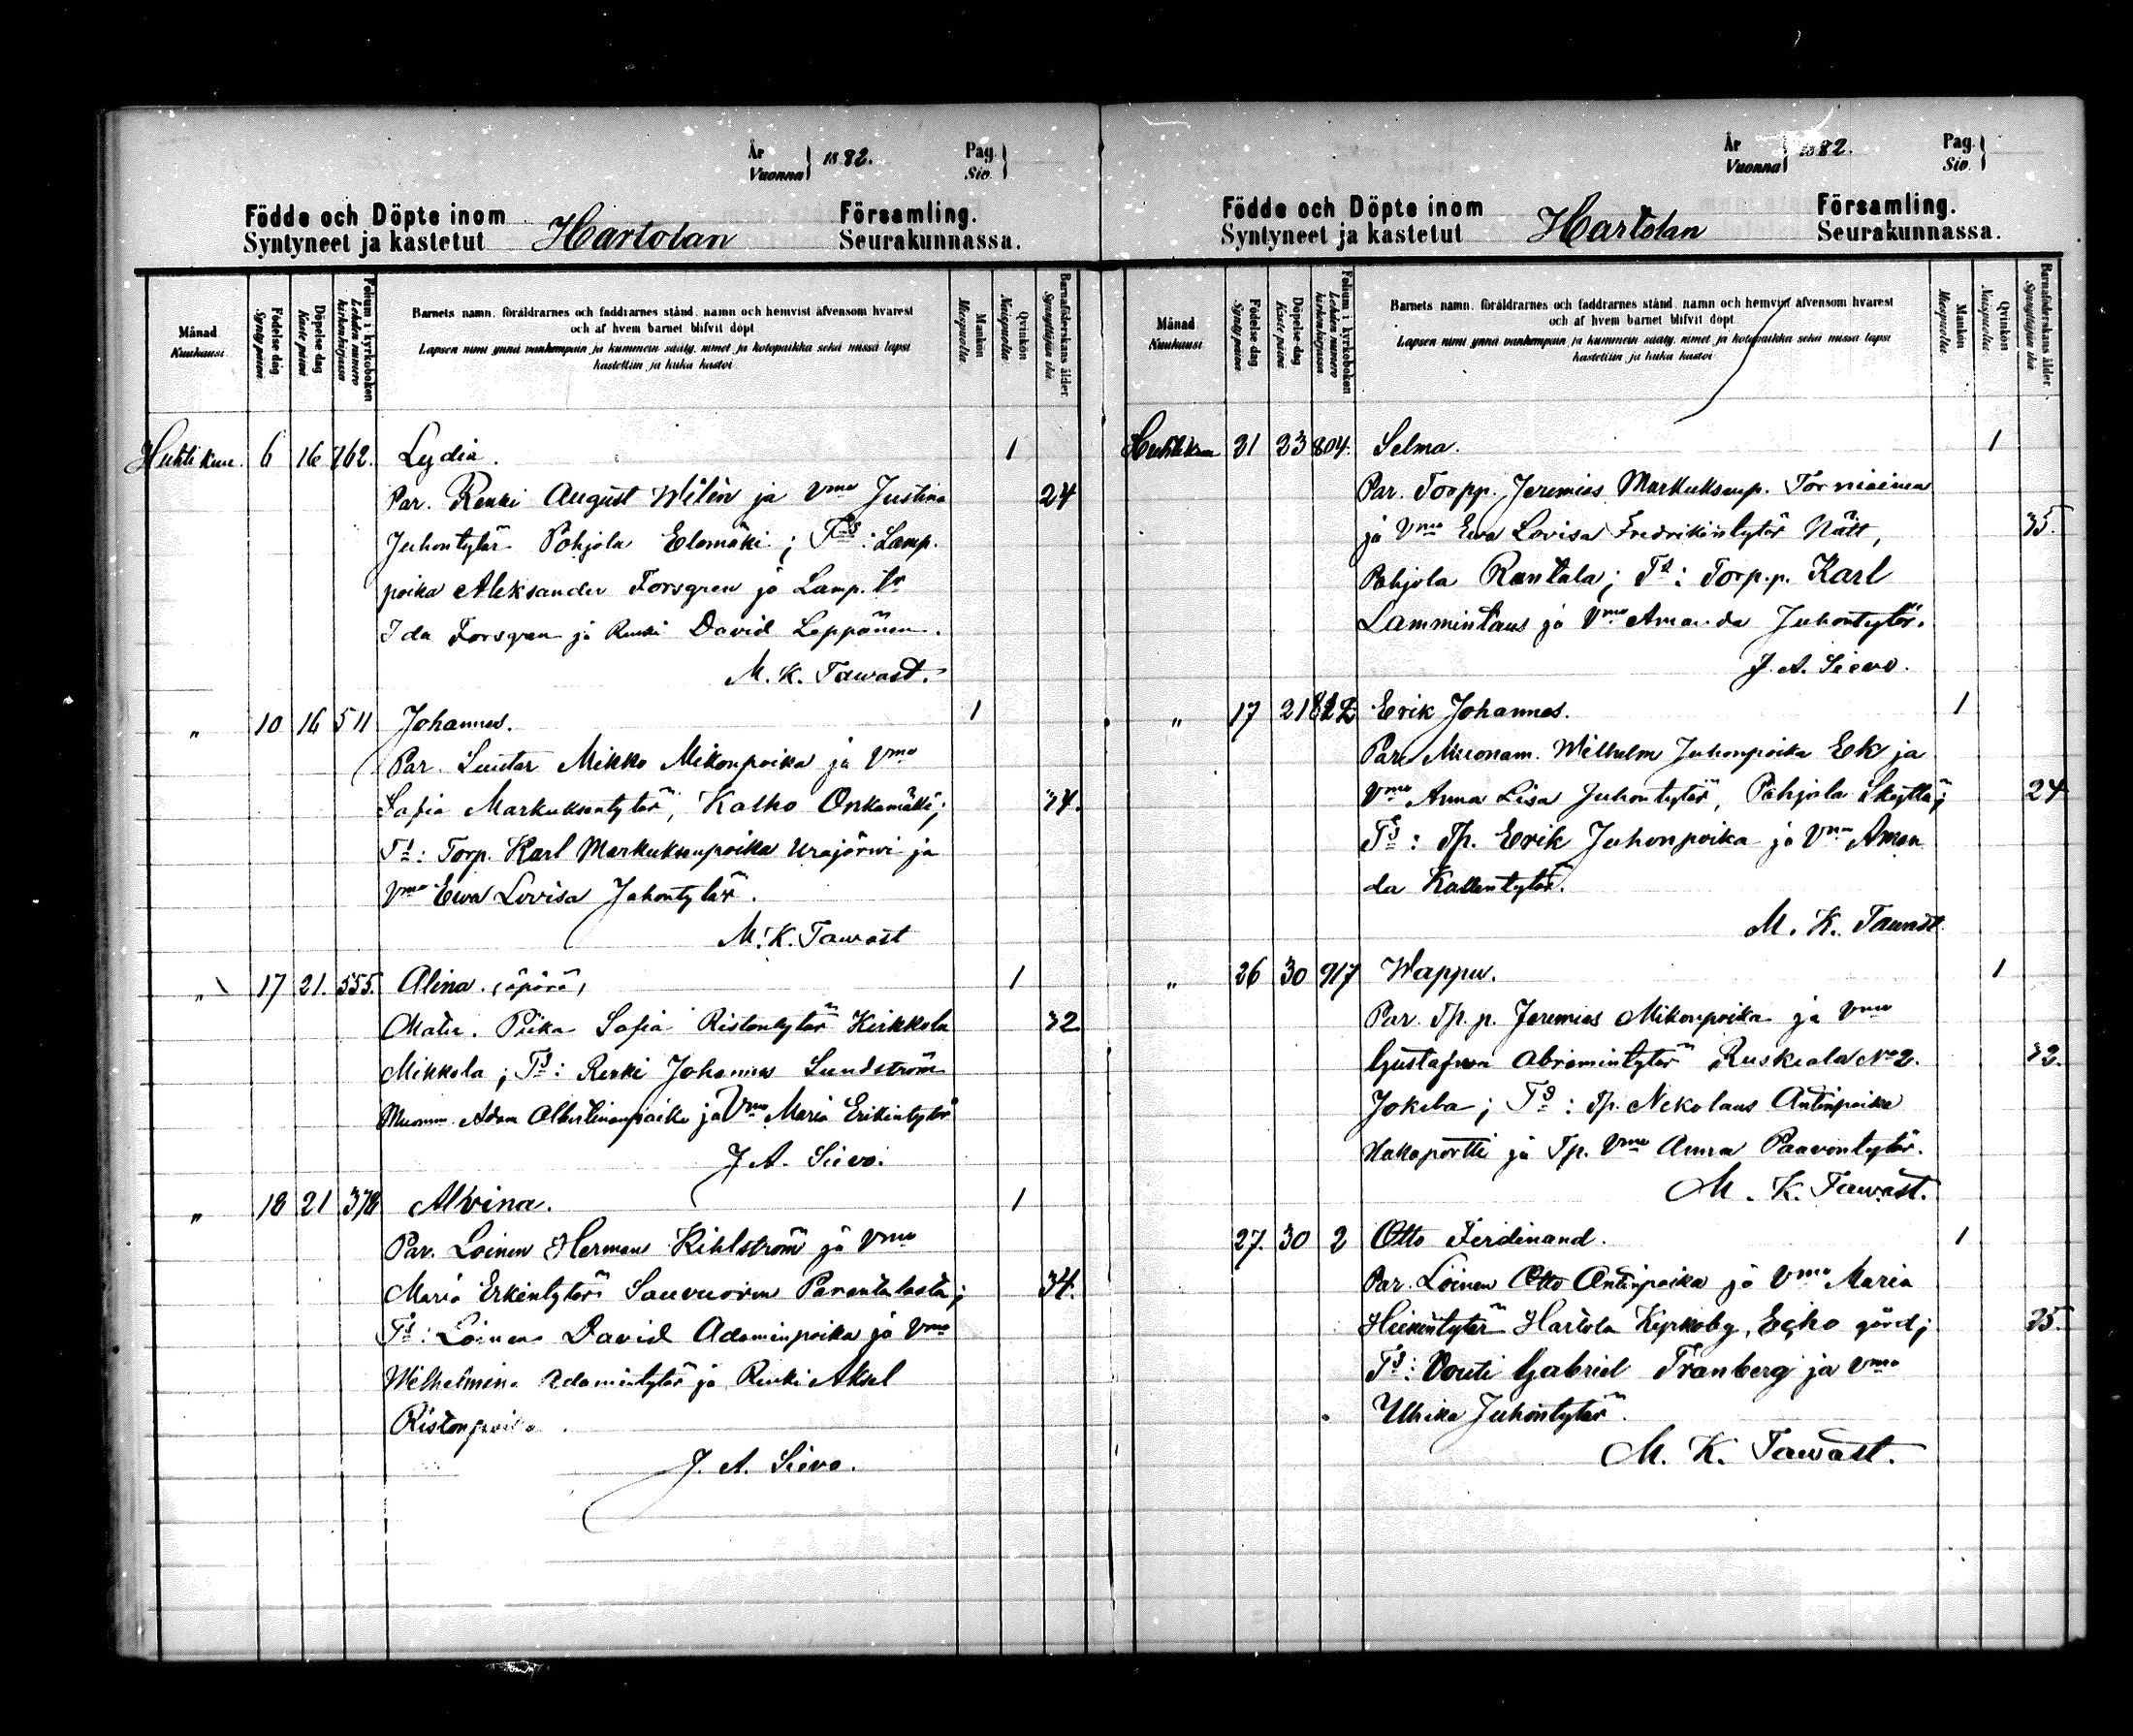 År
Vuonna } 1882.
Pag.
Siv. }
Födde och Döpte inom
Syntyneet ja kastetut
Hartolan
Församling.
Seurakunnassa.
Månad
Kuukausi
Födelse dag
Synty päivä
Döpelse dag
Kaste päivä
Folium i kyrkoboken
Lehden numero
kirkonkirjassa
Barnets namn, föräldrarnes och faddrarnes stånd, namn och hemvist äfvensom hvarest
och af hvem barnet blifvit döpt
Lapsen nimi ynnä vanhempain ja kummein sääty, nimet ja kotopaikka sekä missä lapsi
kastettiin ja kuka kastoi
Mankön
Miespuolia
Qvinkön
Naispuolia
Barnaföderskans ålder
Synnyttäjän ikä
Huhtikuu. 6 16 762. Lydia. 1
Par. Renki August Wilén ja Vmo Justina 24
Juhontytär Pohjola Elomäki; Ts: Lamp.
poika Aleksander Forsgren ja Lamp. tr
Ida Forsgren ja Renki David Leppänen.
M. K. Tawast.
" 10 16 511 Johannes. 1
Par. Suutar Mikko Mikonpoika ja Vmo
Sofia Markuksentytär, Kalho Onkamäki; 34.
Ts: Torp. Karl Markuksenpoika Urajärwi ja
Vmo Ewa Lovisa Johontytär.
M. K. Tawast
" 17 21. 555. Alina. (äpärä) 1
Mater. Piika Sofia Ristontytär Kirkkola 32
Mikkola; Ts: Renki Johannes Sundström
Muonm. Adam Albertinanpoika ja Vmo Maria Erikintytär
J. A. Sievo.
" 18 21 378 Alvina. 1
Par. Loinen Herman Kihlström ja Vmo
Maria Erkintytär Sauvuoren Parantalasta; 34.
Ts: Loinen David Adaminpoika ja Vmo
Wilhelmina Adamintytär ja Renki Aksel
Ristonpoika.
J. A. Sievo.
År
Vuonna } 1882.
Pag.
Siv. }
Födde och Döpte inom
Syntyneet ja kastetut
Hartolan
Församling.
Seurakunnassa.
Månad
Kuukausi
Födelse dag
Synty päivä
Döpelse dag
Kaste päivä
Folium i kyrkoboken
Lehden numero
kirkonkirjassa
Barnets namn, föräldrarnes och faddrarnes stånd, namn och hemvist äfvensom hvarest
och af hvem barnet blifvit döpt
Lapsen nimi ynnä vanhempain ja kummein sääty, nimet ja kotopaikka sekä missä lapsi
kastettiin ja kuka kastoi
Mankön
Miespuolia
Qvinkön
Naispuolia
Barnaföderskans ålder
Synnyttäjän ikä
Huhtikuu 21 23 804. Selma. 1
Par. Torpp. Jeremias Markuksenp. Torniainen
ja Vmo Ewa Lovisa Fredrikintytär Nätt, 35.
Pohjola Rantala; Ts: Torp.p. Karl
Lammintaus ja Vmo Amanda Juhontytär.
J. A. Sievo.
" 17 21 822 Erik Johannes. 1
Par. Muonam. Wilhelm Juhonpoika Ek ja
Vmo Anna Lisa Juhontytär, Pohjola Skyttä; 24
Ts: Tp. Erik Juhonpoika ja Vmo Aman
da Kallentytär.
M. K. Tawast
" 26 30 917 Wappu. 1
Par. Tp. p. Jeremias Mikonpoika ja Vmo
Gustafwa Abramintytär Ruskeala No 2. 32.
Jokela; Ts: Tp. Nikolaus Antinpoika
Hakaportti ja Tp. Vmo Anna Paavontytär.
M. K. Tawast.
27. 30 2 Otto Ferdinand. 1
Par. Loinen Otto Antinpoika ja Vmo Maria
Heikintytär Hartola Kyrkoby, Echo gård; 35.
Ts: Vouti Gabriel Tranberg ja Vmo
Ulrika Juhontytär.
M. K. Tawast.